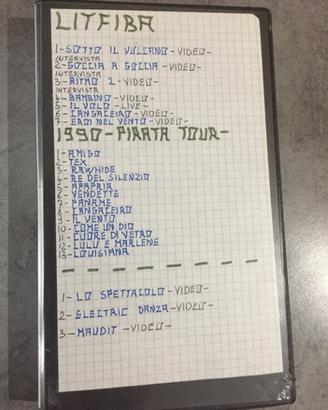 LITFIBA
1-SOTTO IL VULCANO-VIDEO-
INTERVISTA
2-GOCCIA A GOCCIA-VIDEO-
INTERVISTA
3-RITMO 2-VIDEO-
INTERVISTA
4-BAMBINO-VIDEO-
5-IL VOLO-LIVE-
6-CANGACEIRO-VIDEO-
7-EROI NEL VENTO-VIDEO-
1990-PIRATA TOUR-
1-AMIGO
2-TEX
3-RAWHIDE
4-RE DEL SILENZIO
5-APAPAIA
6-VENDETTE
7-PANAME
8-CANGACEIRO
9-IL VENTO
10-COME UN DIO
11-CUORE DI VETRO
12-LULU E MARLENE
13-LOUISIANA
1-LO SPETTACOLO-VIDEO-
2-ELECTRIC DANZA-VIDEO-
3-MAUDIT-VIDEO-